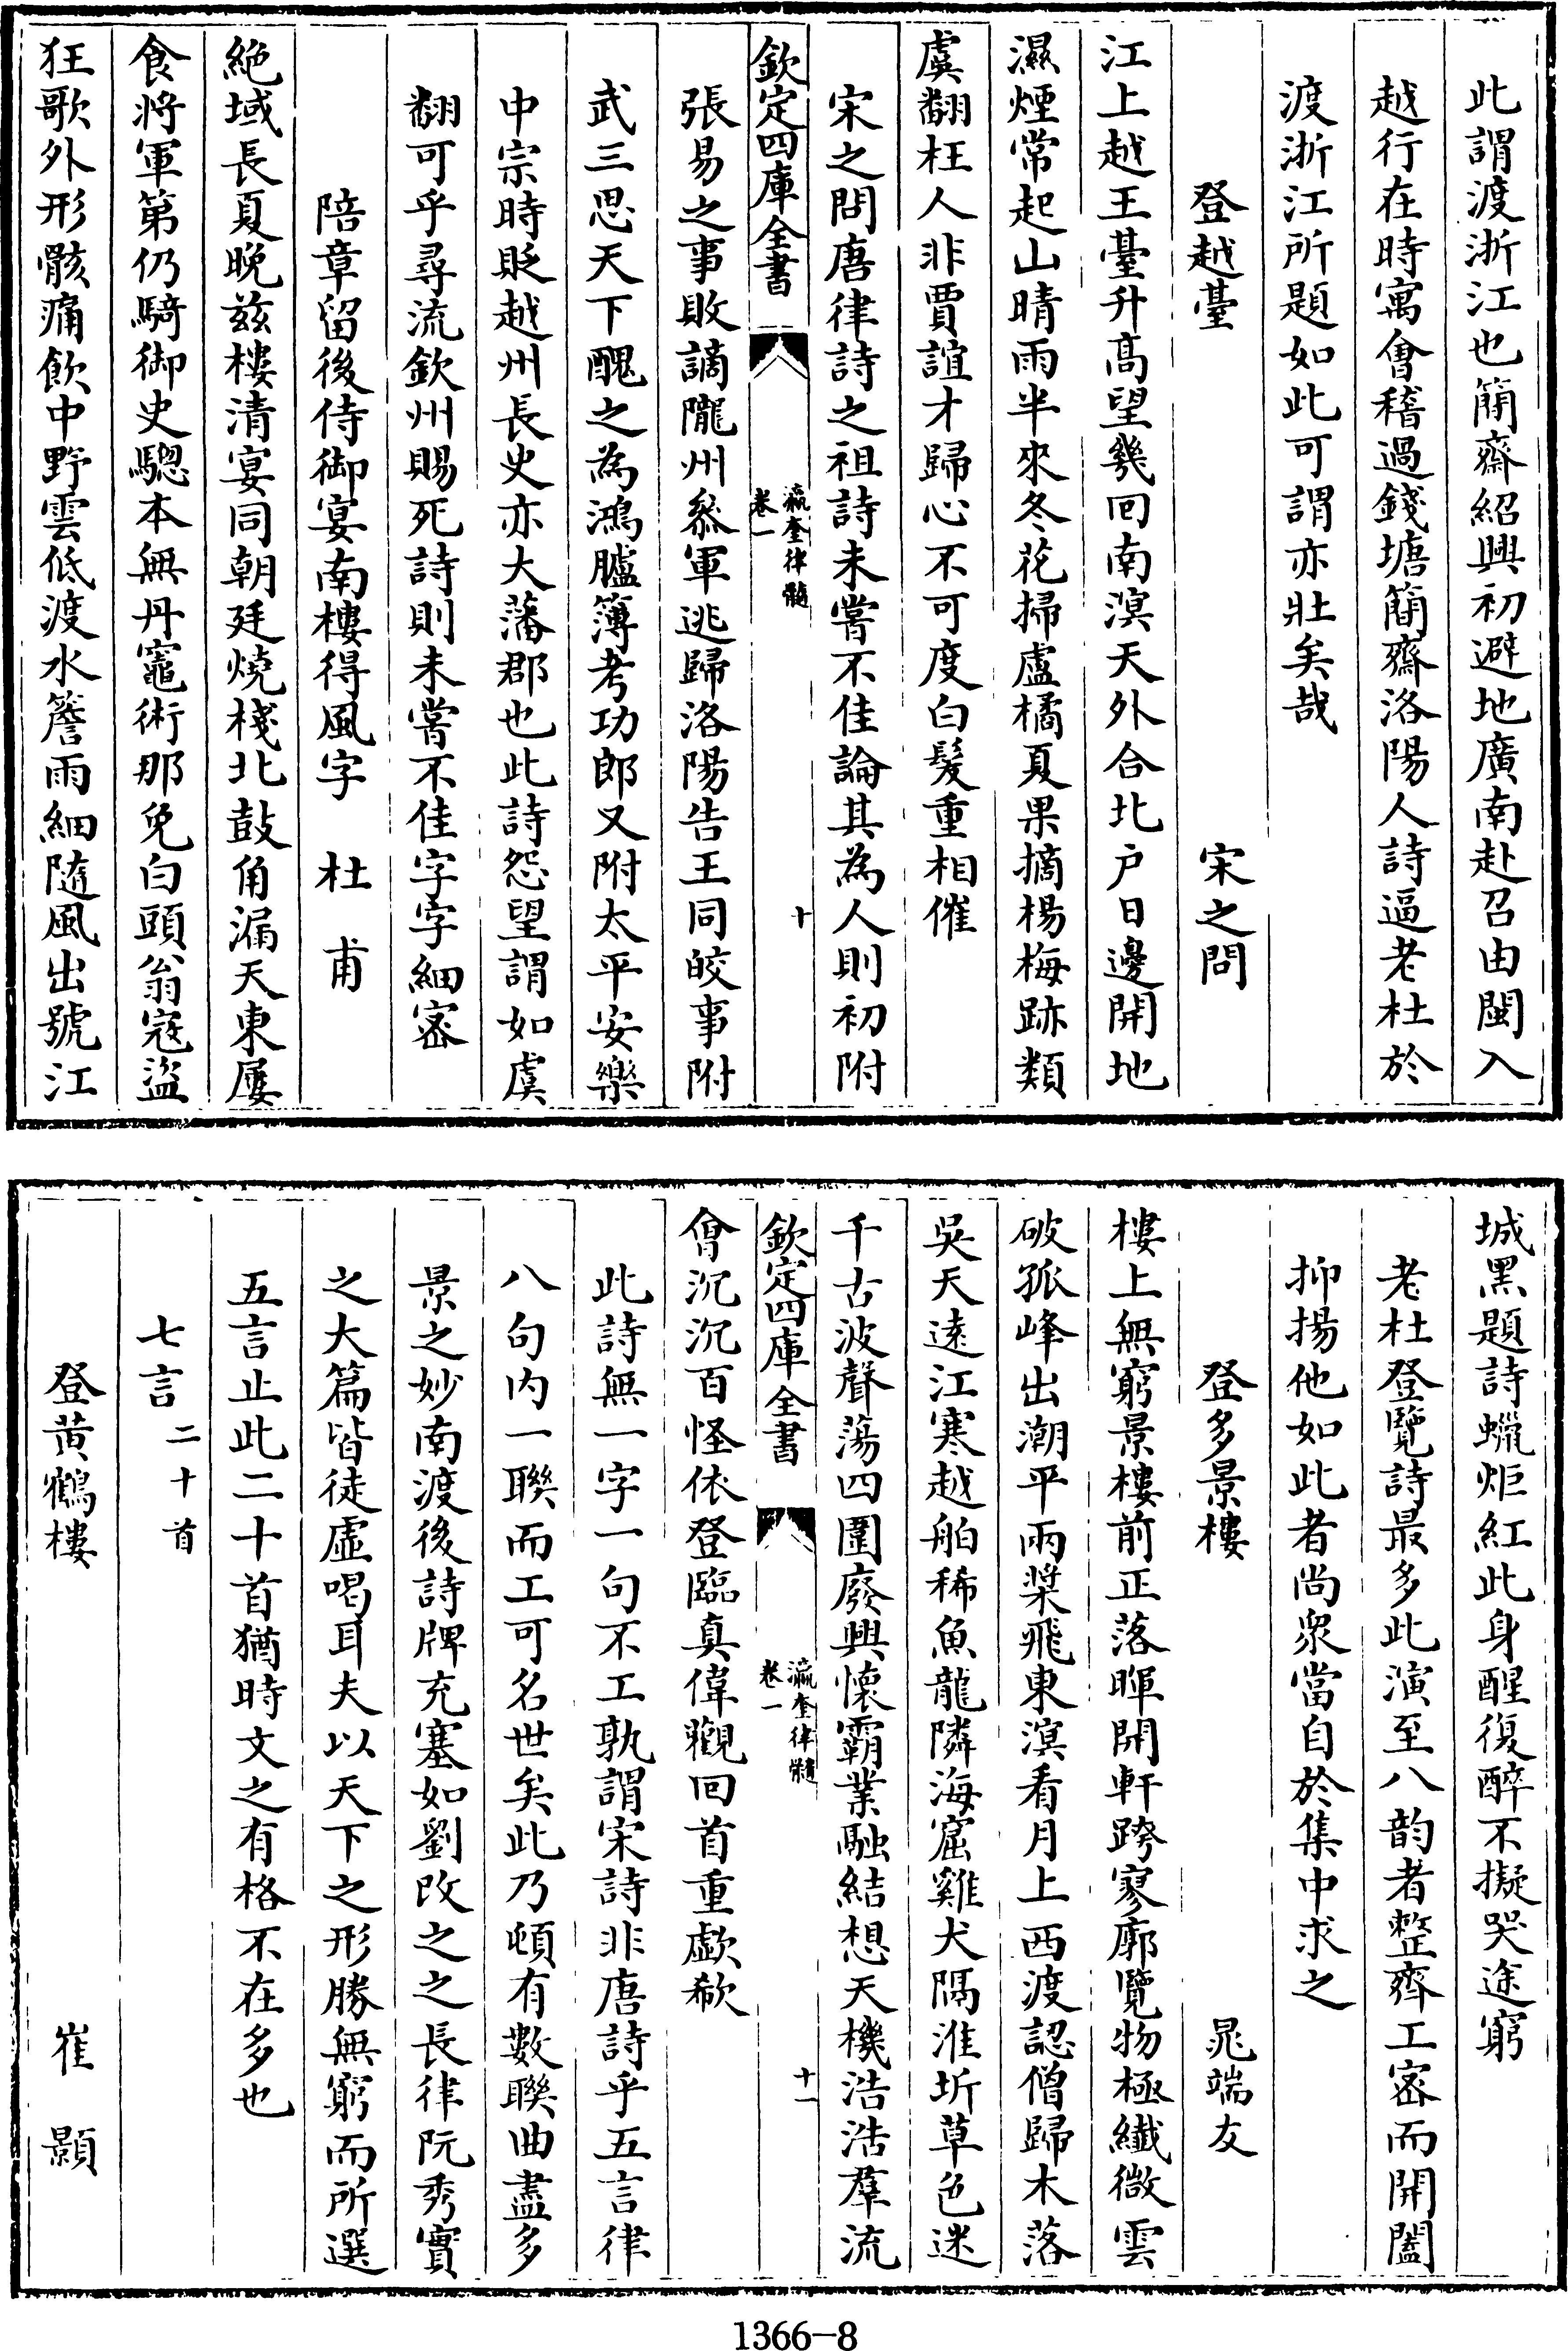 此謂渡浙江也簡齋紹興初避地廣南赴召由閩入
越行在時寓會稽過錢塘簡齋洛陽人詩逼老杜於
渡浙江所題如此可謂亦壯矣哉
登越臺 宋之問
江上越王臺升高望幾回南溟天外合北户日邊開地
濕煙常起山晴雨半來冬花掃盧橘夏果摘楊梅跡類
虞翻枉人非賈誼才歸心不可度白髮重相催
宋之問唐律詩之祖詩未嘗不佳論其為人則初附
欽定四庫全書 瀛奎律髓 卷一 十
張易之事敗謫隴州叅軍逃歸洛陽告王同皎事附
武三思天下醜之為鴻臚簿考功郎又附太平安樂
中宗時貶越州長史亦大藩郡也此詩怨望謂如虞
翻可乎尋流欽州賜死詩則未嘗不佳字字細密
陪章留後侍御宴南樓得風字 杜甫
絶域長夏晚兹樓清宴同朝廷燒棧北鼓角漏天東屢
食將軍第仍騎御史驄本無丹竈術那免白頭翁寇盜
狂歌外形骸痛飲中野雲低渡水簷雨細隨風出號江
城黑題詩蠟炬紅此身醒復醉不擬哭途窮
老杜登覽詩最多此演至八韵者整齊工密而開闔
抑揚他如此者尚衆當自於集中求之
登多景樓 晁端友
樓上無窮景樓前正落暉開軒跨寥廓覽物極纎微雲
破孤峰出潮平兩槳飛東溟看月上西渡認僧歸木落
吳天遠江寒越舶稀魚龍隣海窟雞犬隔淮圻草色迷
千古波聲蕩四圍廢興懷霸業融結想天機浩浩羣流
欽定四庫全書 瀛奎律髓 卷一 十一
會沉沉百怪依登臨真偉觀回首重歔欷
此詩無一字一句不工孰謂宋詩非唐詩乎五言律
八句内一聯而工可名世矣此乃頓有數聯曲盡多
景之妙南渡後詩牌充塞如劉改之之長律阮秀實
之大篇皆徒虛喝耳夫以天下之形勝無窮而所選
五言止此二十首猶時文之有格不在多也
七言 二十首
登黄鶴樓 崔顥
1366-8